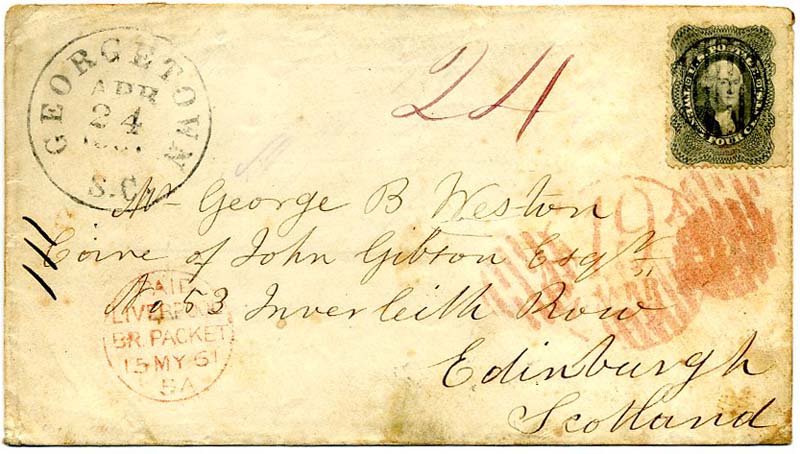 GEORGETOWN
APR
24
S.C
24
U.S. POSTAGE
TWENTY FOUR CENTS
Mr George B Weston
Care of John Gibson Esqr
No 53 Inverleith Row
Edinburgh
Scotland
19
PAID
LIVERPOOL
BR. PACKET
15 MY 61
5A